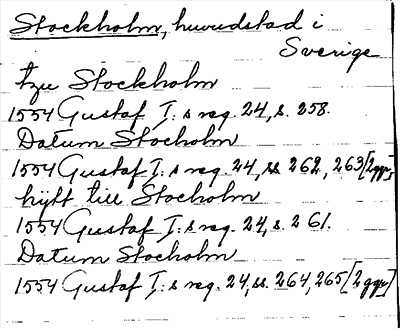 Stockholm, huvudstad i
Sverige
tzu Stockholm
1554 Gustaf I: s reg. 24, s. 258.
Datum Stocholm
1554 Gustaf I: s reg. 24, ss. 262, 263 [2 ggr],
hijtt till Stocholm
1554 Gustaf I: s reg. 24, s. 261.
Datum Stocholm
1554 Gustaf I: s reg. 24, ss. 264, 265 [2 ggr]